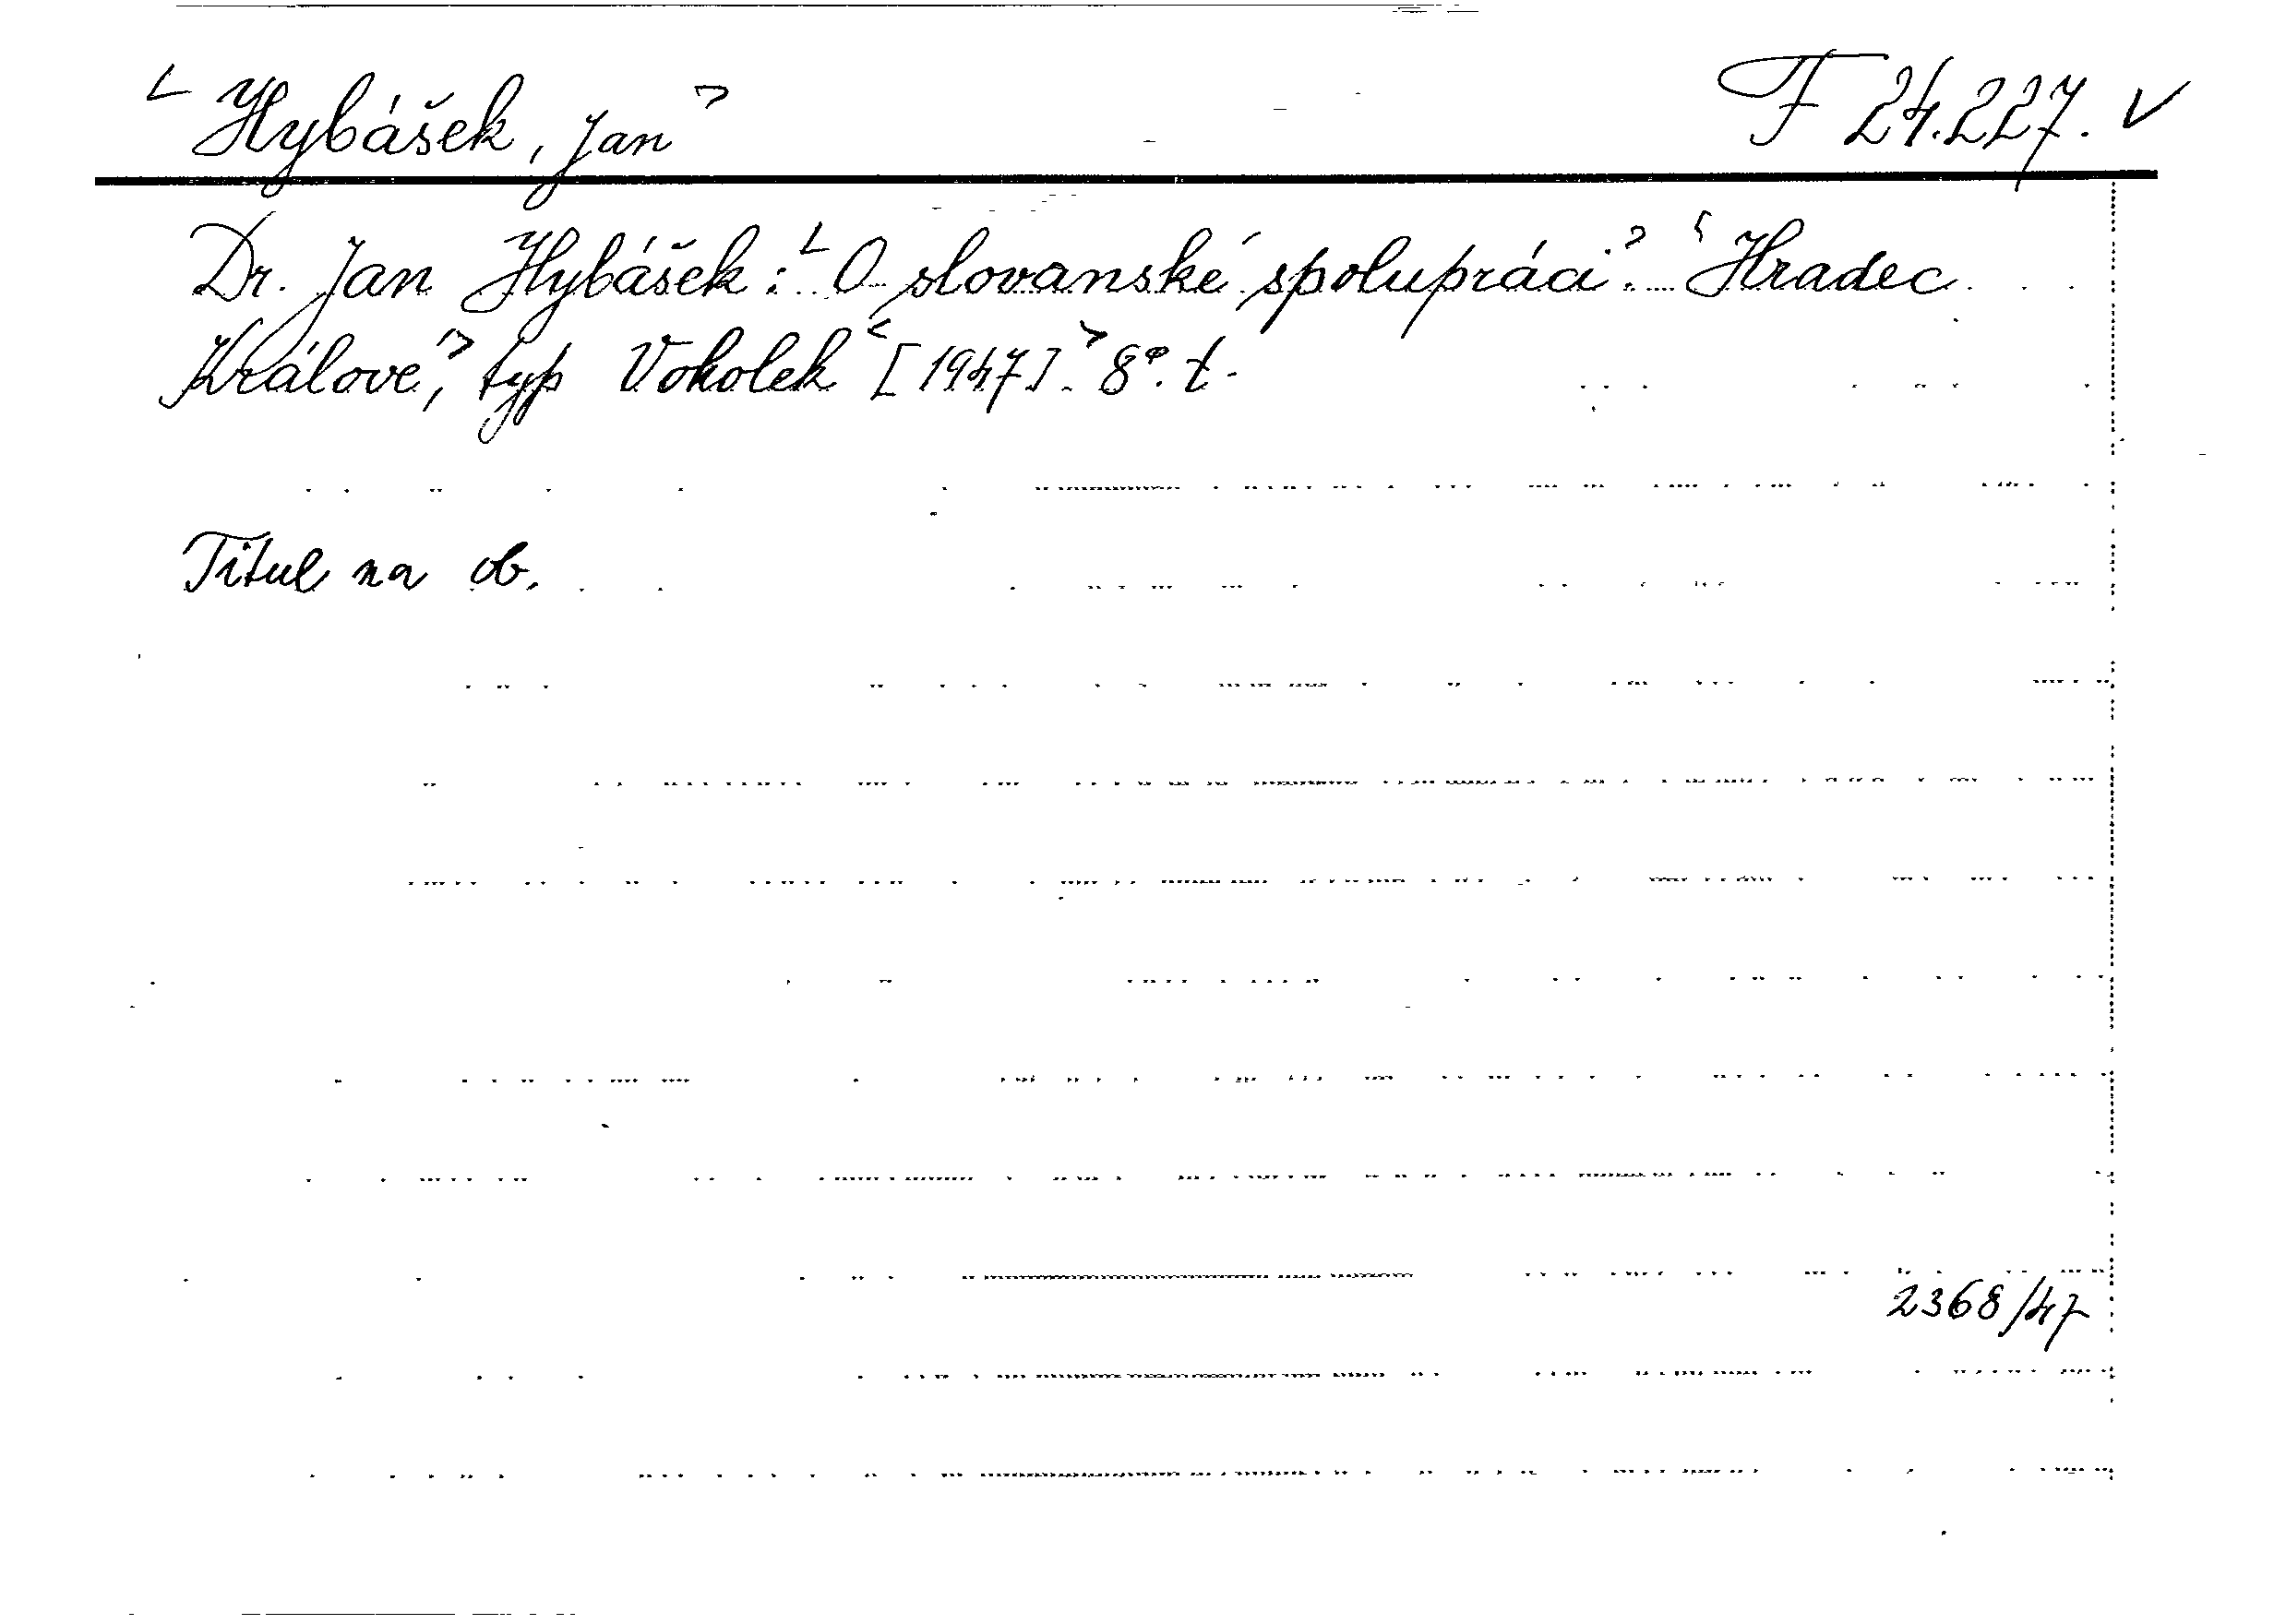 <Hybášek, Jan> F 24.227. ✓
Dr. Jan Hybášek: <O slovanské spolupráci.> <Hradec
Králové,> typ Vokolek <[1947].> 8°. t.
Titul na ob.
2368/47